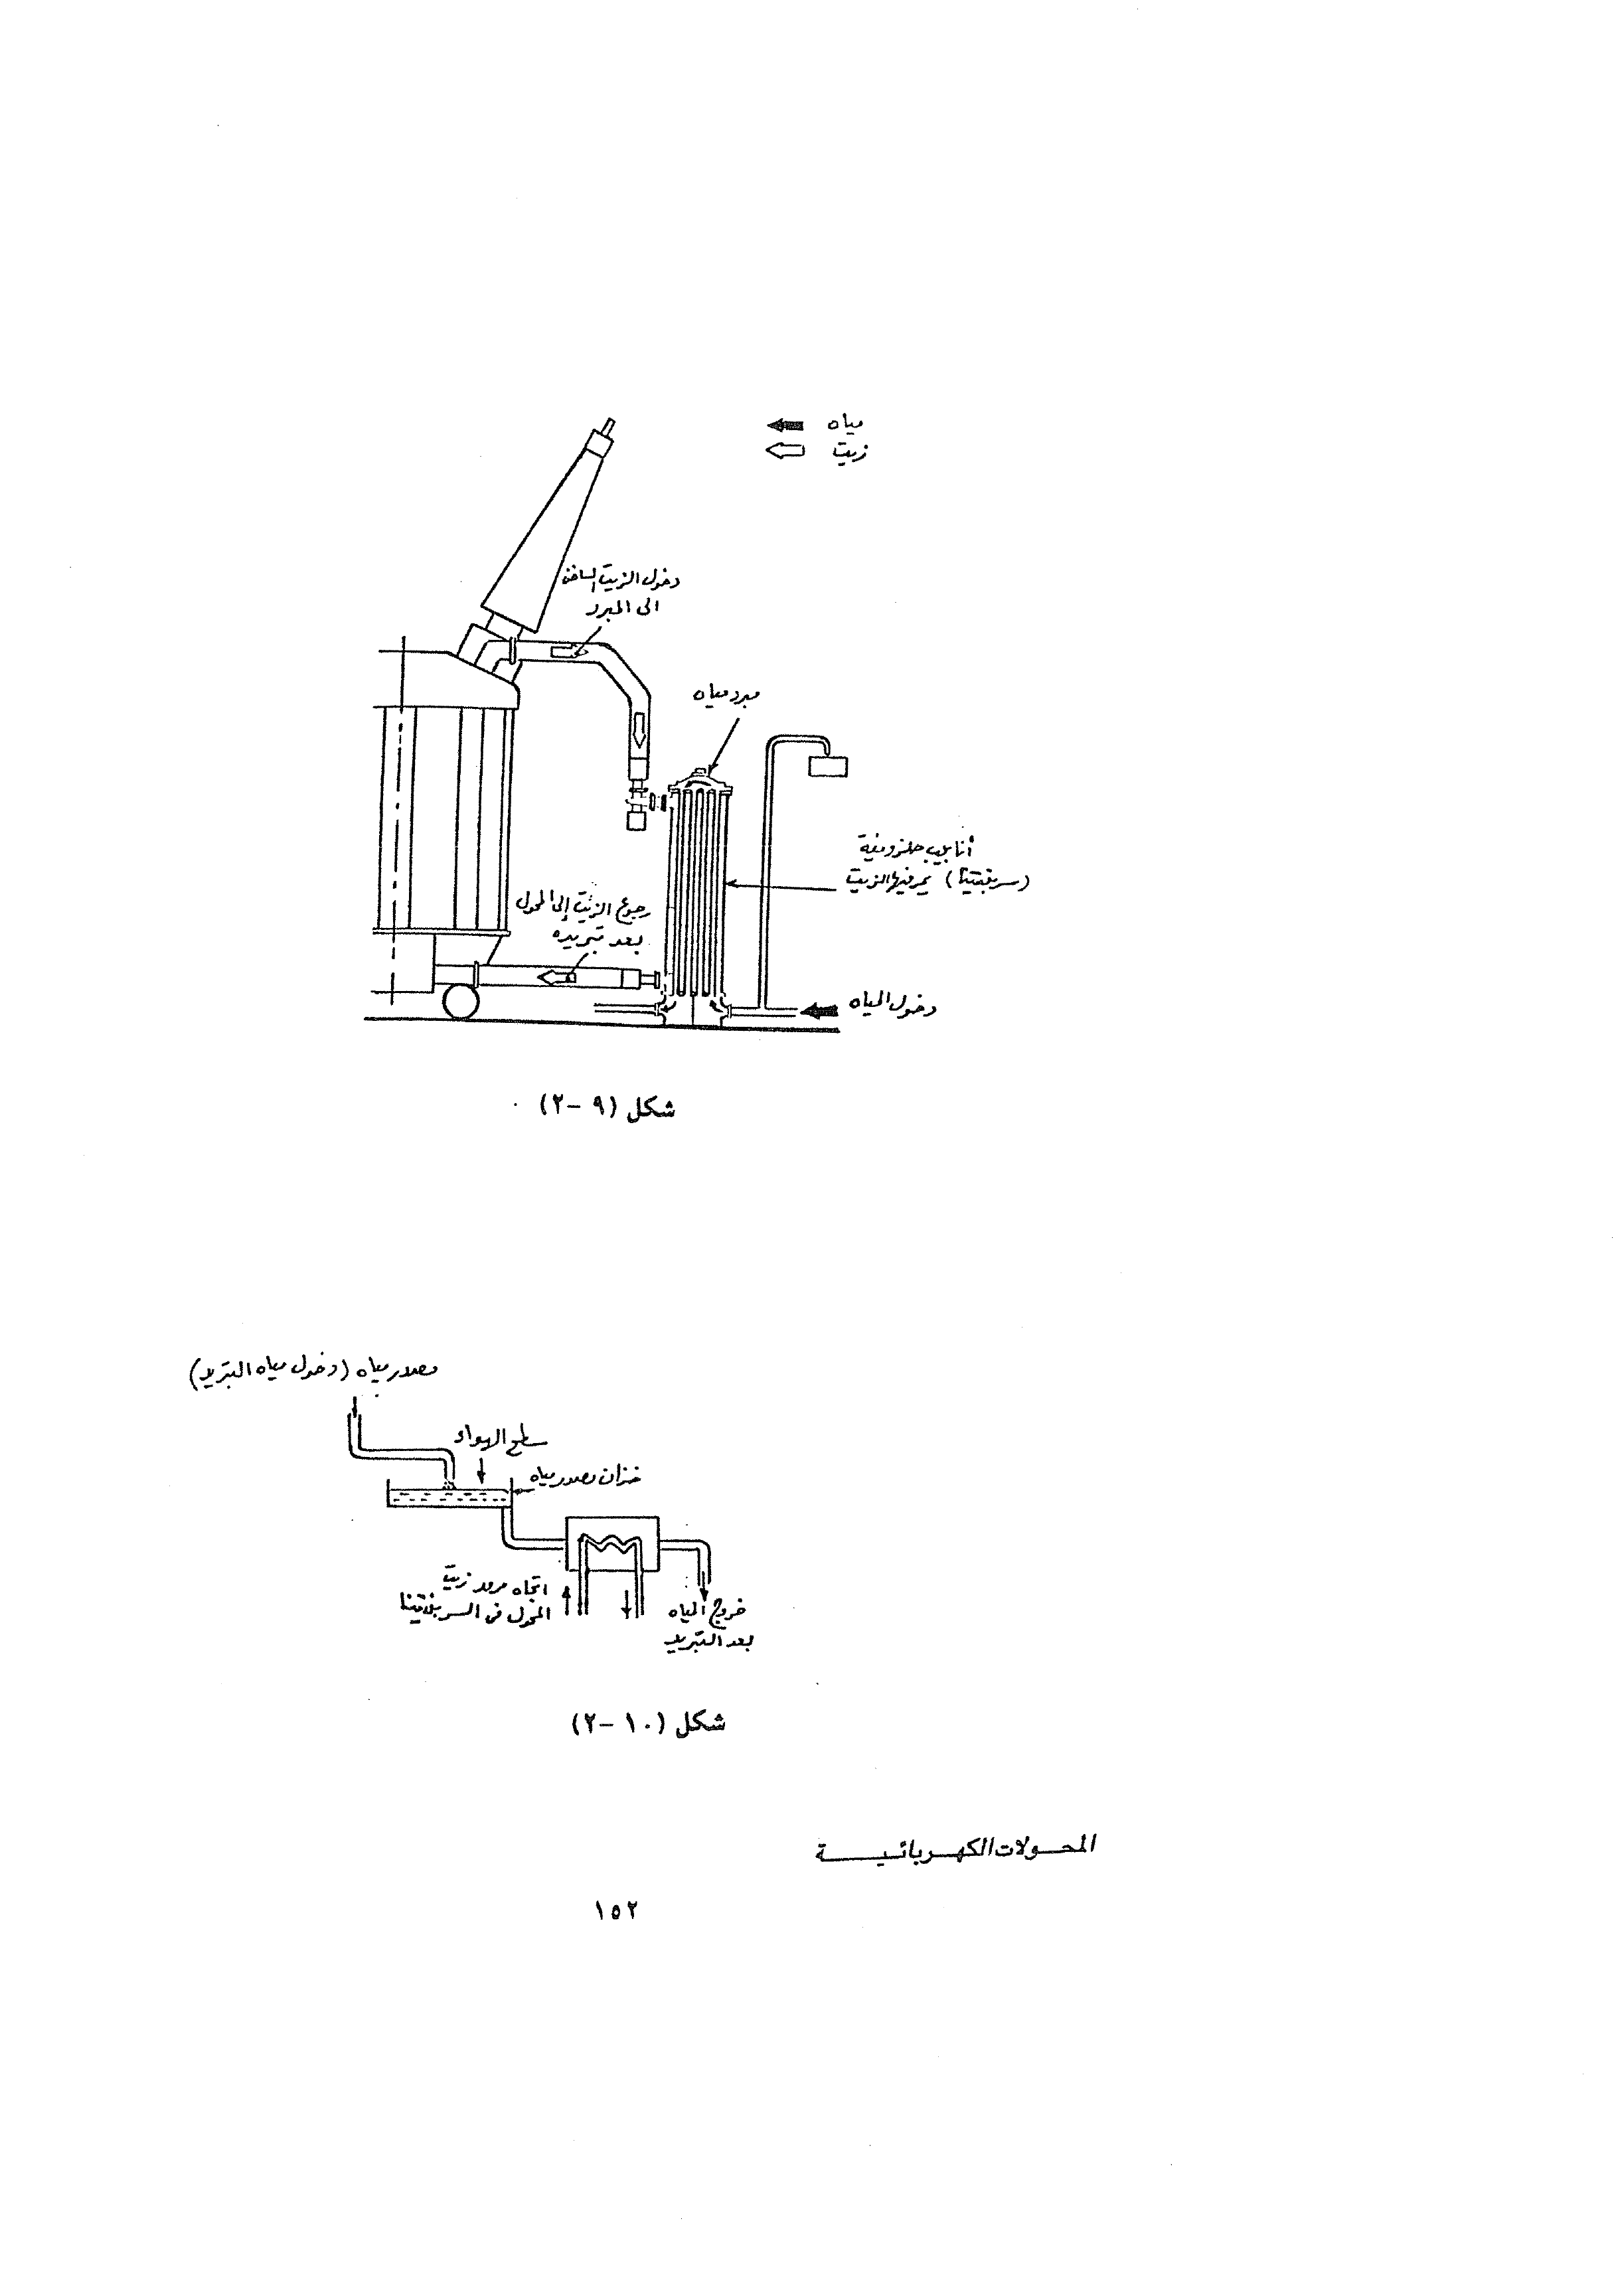 مياه
زيت
دخول الزيت الساخن
الى المبرد
مبرد مياه
أنابيب حلزونية
(سربنتينا) يمر فيها الزيت
رجوع الزيت إلى المحول
بعد تبريده
دخول المياه
شكل (٩ -٢)
مصدر مياه (دخول مياه التبريد)
سطح الهواء
خزان مصدر مياه
اتجاه مرور زيت
المحول فى السربنتينا
خروج المياه
بعد التبريد
شكل (١٠ -٢)
المحـــولات الكهــربائــيـــــة
١٥٢